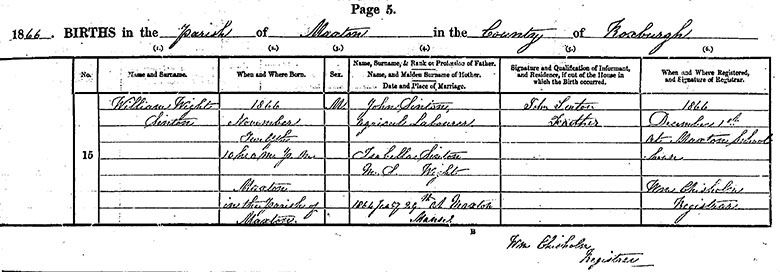 Page 5.
1866. BIRTHS in the Parish of Maxton in the County of Roxburgh
(1.) (2.) (3.) (4.) (5.) (6.)
No. Name and Surname. When and Where Born. Sex. Name, Surname, & Rank or Profession of Father. Name, and Maiden Surname of Mother. Date and Place of Marriage. Signature and Qualification of Informant, and Residence, if out of the House in which the Birth occurred. When and Where Registered, and Signature of Registrar.
15
William Wight
Sinton
1866
November
Twelfth
M.
Maxton
in the Parish of
Maxton
M
John Sinton
Agricul Labourer
Isabella Sinton
M.S. Wight
1864 29th At Maxton
Manse
John Sinton
Father
1866
December 1st
At Maxton School
house
Wm Chisholm
Registrar
B
Wm Chisholm
Registrar